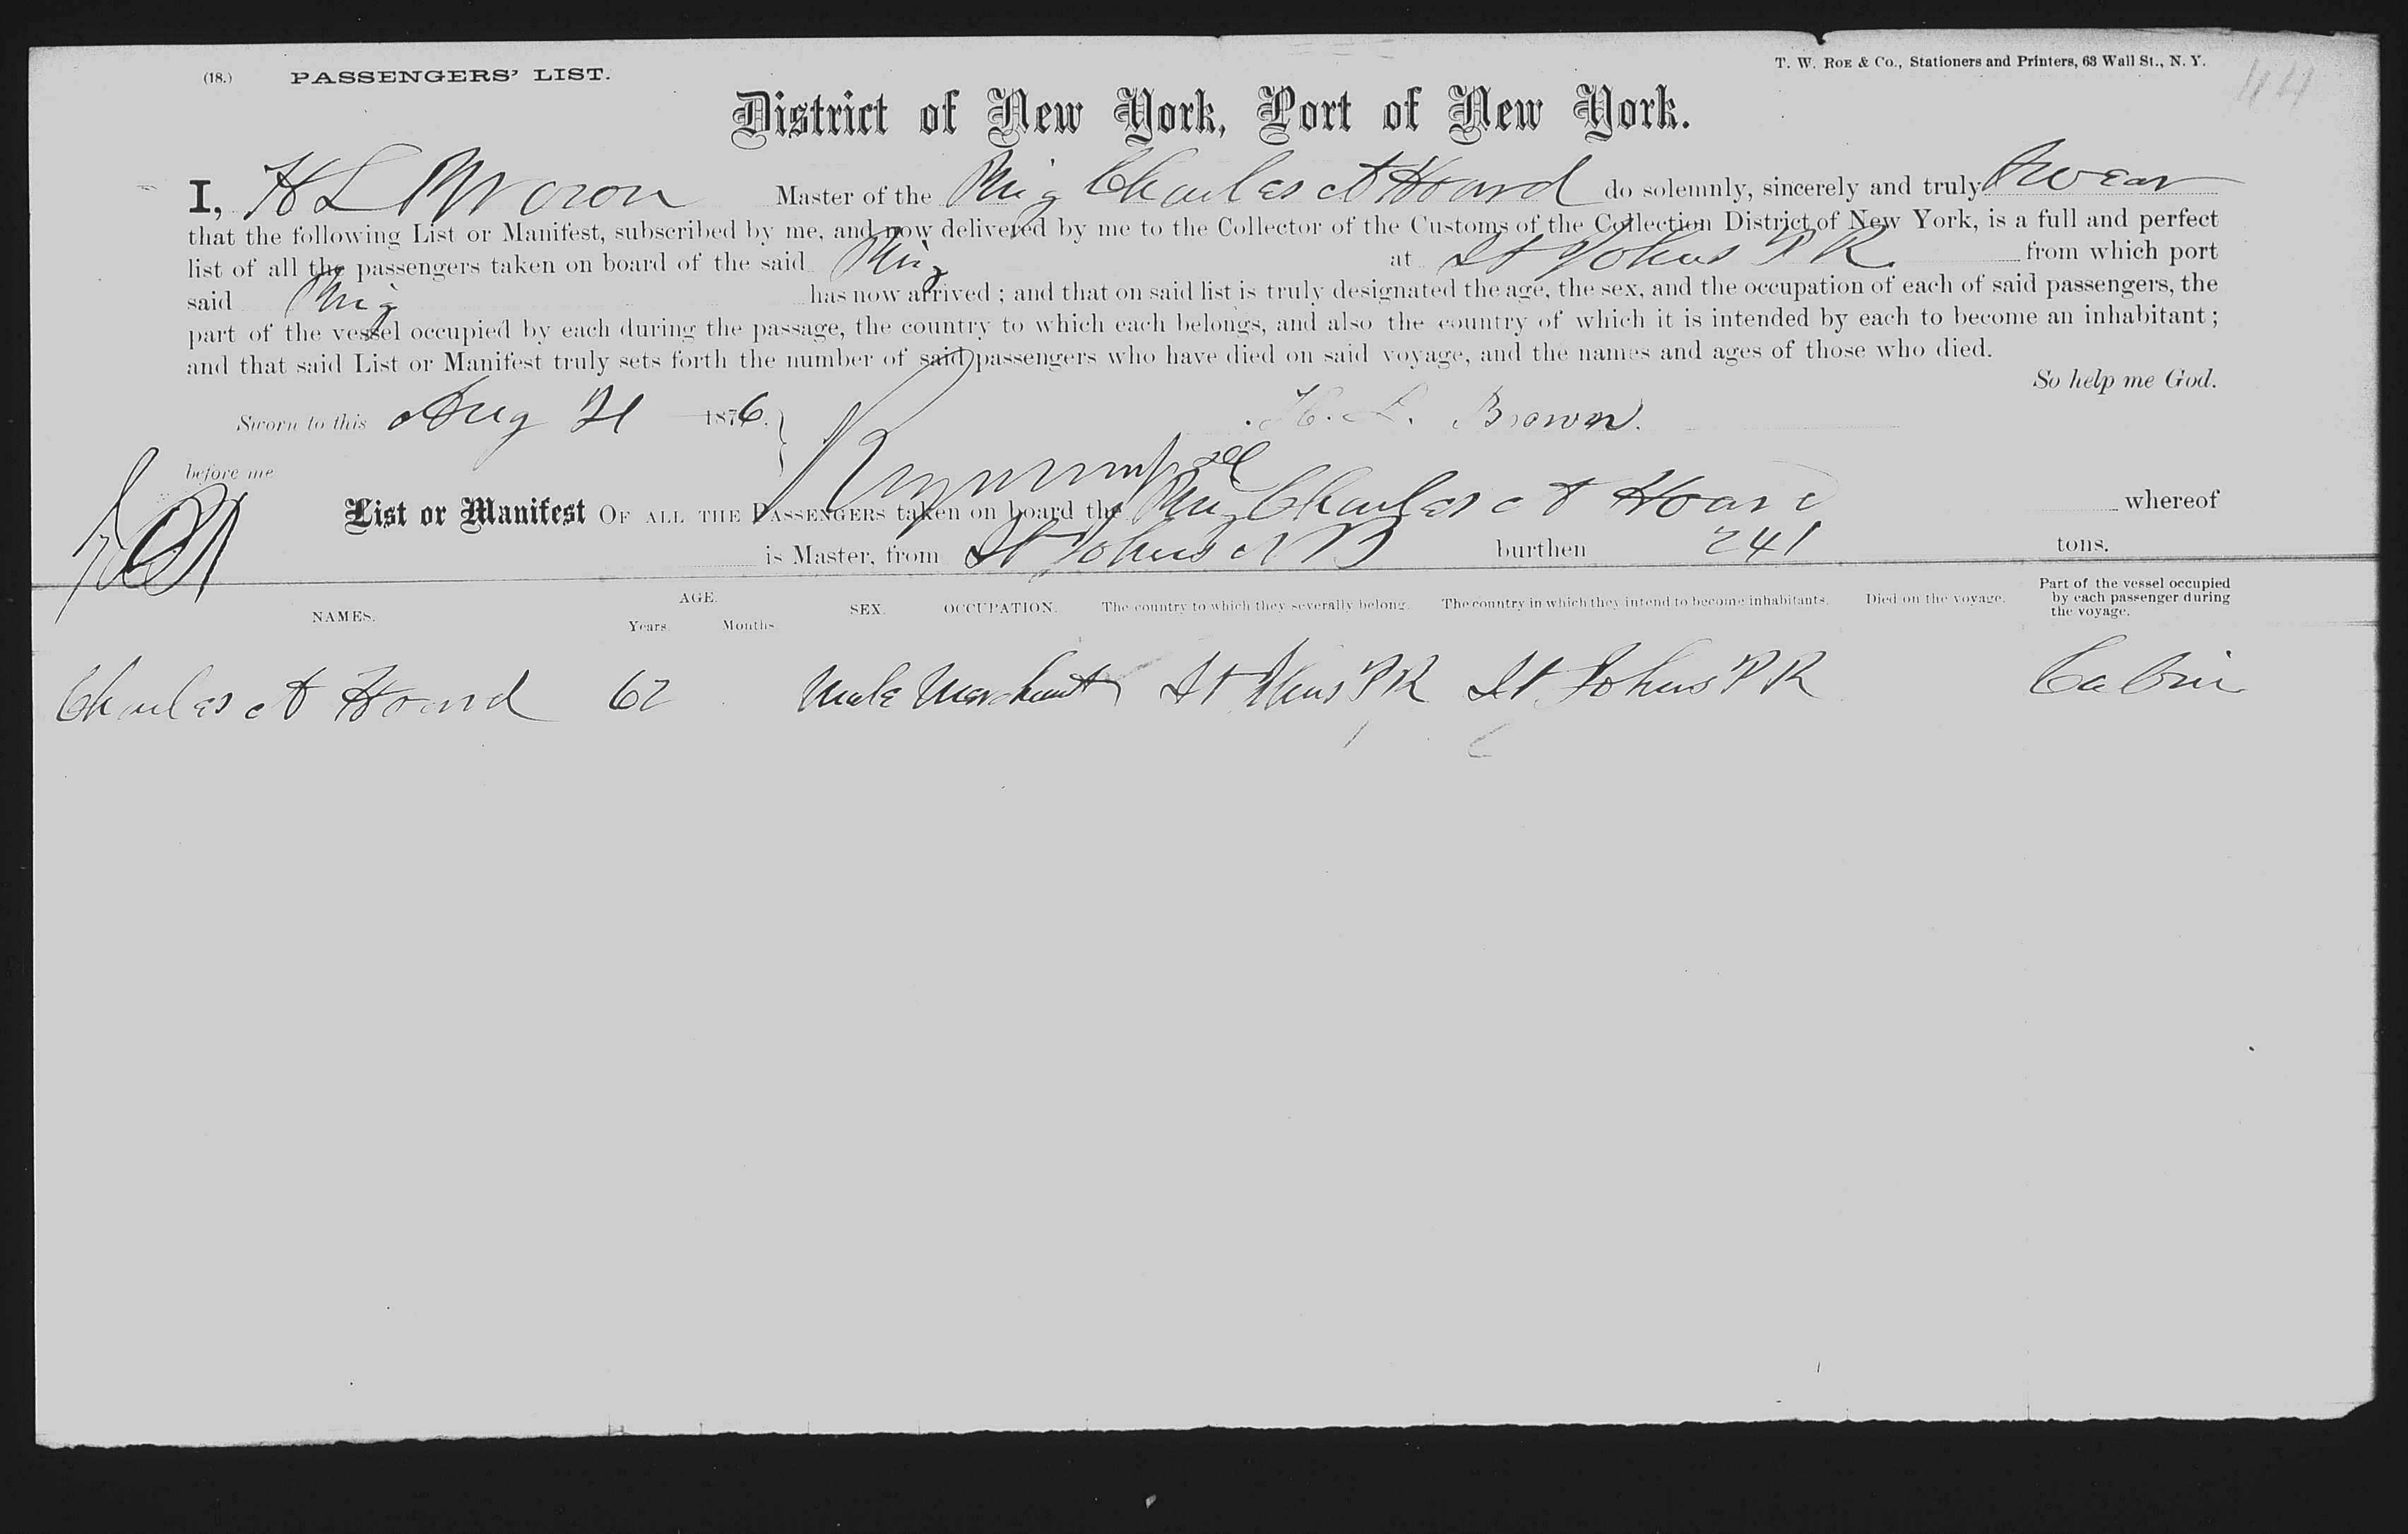 (18.) PASSENGERS' LIST. T. W. ROE & Co., Stationers and Printers, 63 Wall St., N. Y.
District of New York, Port of New York.
I, H L Brown Master of the Brig Charles A Hoard do solemnly, sincerely and truly swear
that the following List or Manifest, subscribed by me, and now delivered by me to the Collector of the Customs of the Collection District of New York, is a full and perfect
list of all the passengers taken on board of the said Brig at St Johns P R from which port
said Brig has now arrived; and that on said list is truly designated the age, the sex, and the occupation of each of said passengers, the
part of the vessel occupied by each during the passage, the country to which each belongs, and also the country of which it is intended by each to become an inhabitant;
and that said List or Manifest truly sets forth the number of said passengers who have died on said voyage, and the names and ages of those who died.
So help me God.
Sworn to this Aug 21 1876. H. L. Brown.
before me
List or Manifest OF ALL THE PASSENGERS taken on board the Brig Charles A Hoard whereof
is Master, from St Johns burthen 241 tons.
NAMES. AGE. Years. Months. SEX. OCCUPATION. The country to which they severally belong. The country in which they intend to become inhabitants. Died on the voyage. Part of the vessel occupied by each passenger during the voyage.
Charles A Hoard 62 Male Merchant St Johns P R St Johns P R Cabin